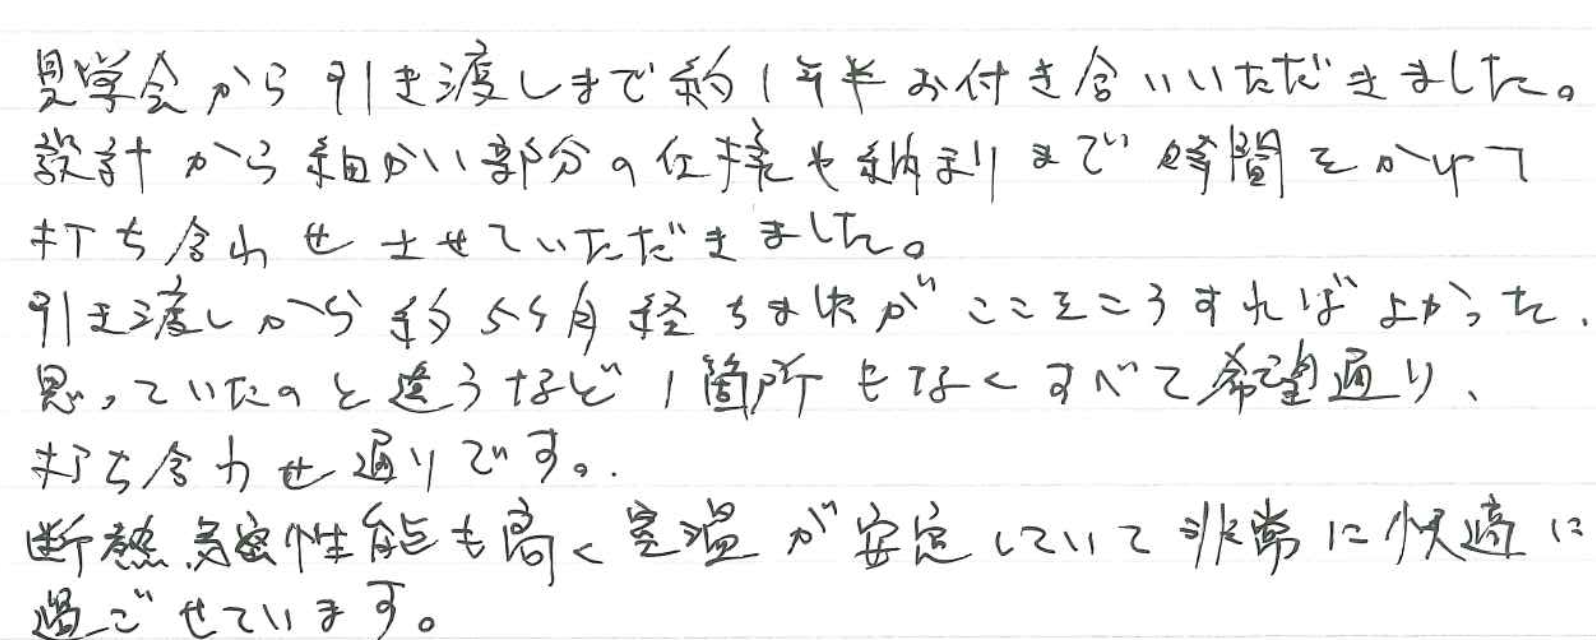 見学会から引き渡しまで約1年半お付き合いいただきました。
設計から細かい部分の仕様や納まりまで時間をかけて
打ち合わせさせていただきました。
引き渡しから約5ヶ月経ちましたがここをこうすればよかった、
思っていたのと違うなど1箇所もなくすべて希望通り、
打ち合わせ通りです。
断熱気密性能も高く室温が安定していて非常に快適に
過ごせています。